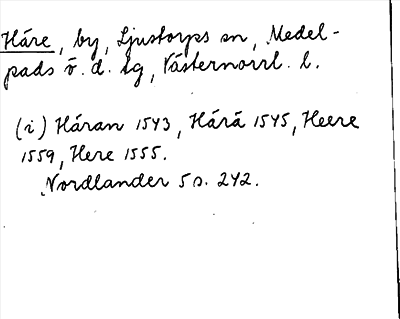 Häre, by, Ljustorps sn, Medel-
pads ö. d. tg, Västernorrl. l.
(i) Häran 1543, Härä 1545, Heere
1559, Here 1555.
Nordlander 5 s. 242.